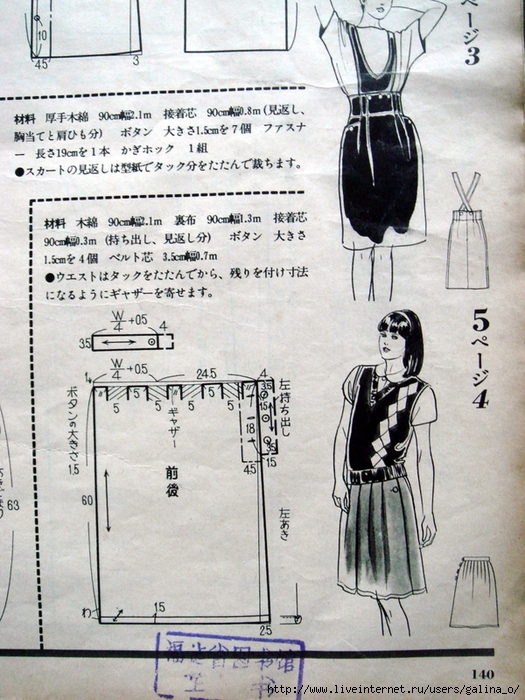 10
45
3
3ページ
材料 厚手木綿 90cm幅2.1m 接着芯 90cm幅0.8m(見返し、
胸当てと肩ひも分) ボタン 大きさ1.5cmを7個 ファスナ
ー 長さ19cmを1本 かぎホック 1組
●スカートの見返しは型紙でタック分をたたんで裁ちます。
材料 木綿 90cm幅2.1m 裏布 90cm幅1.3m 接着芯
90cm幅0.3m(持ち出し、見返し分) ボタン 大きさ
1.5cmを4個 ベルト芯 3.5cm幅0.7m
●ウエストはタックをたたんでから、残りを付け寸法
になるようにギャザーを寄せます。
5
4ページ
W/4+0.5
4
3.5
W/4+0.5
24.5
4
1
5
5
5
5
5
3.5
1.5
18
3.5
4.5
1.5
左持ち出し
ボタンの大きさ
1.5
ギャザー
前後
60
63
左あき
わ
1.5
2.5
福建省图书馆
140
http://www.liveinternet.ru/users/galina_o/